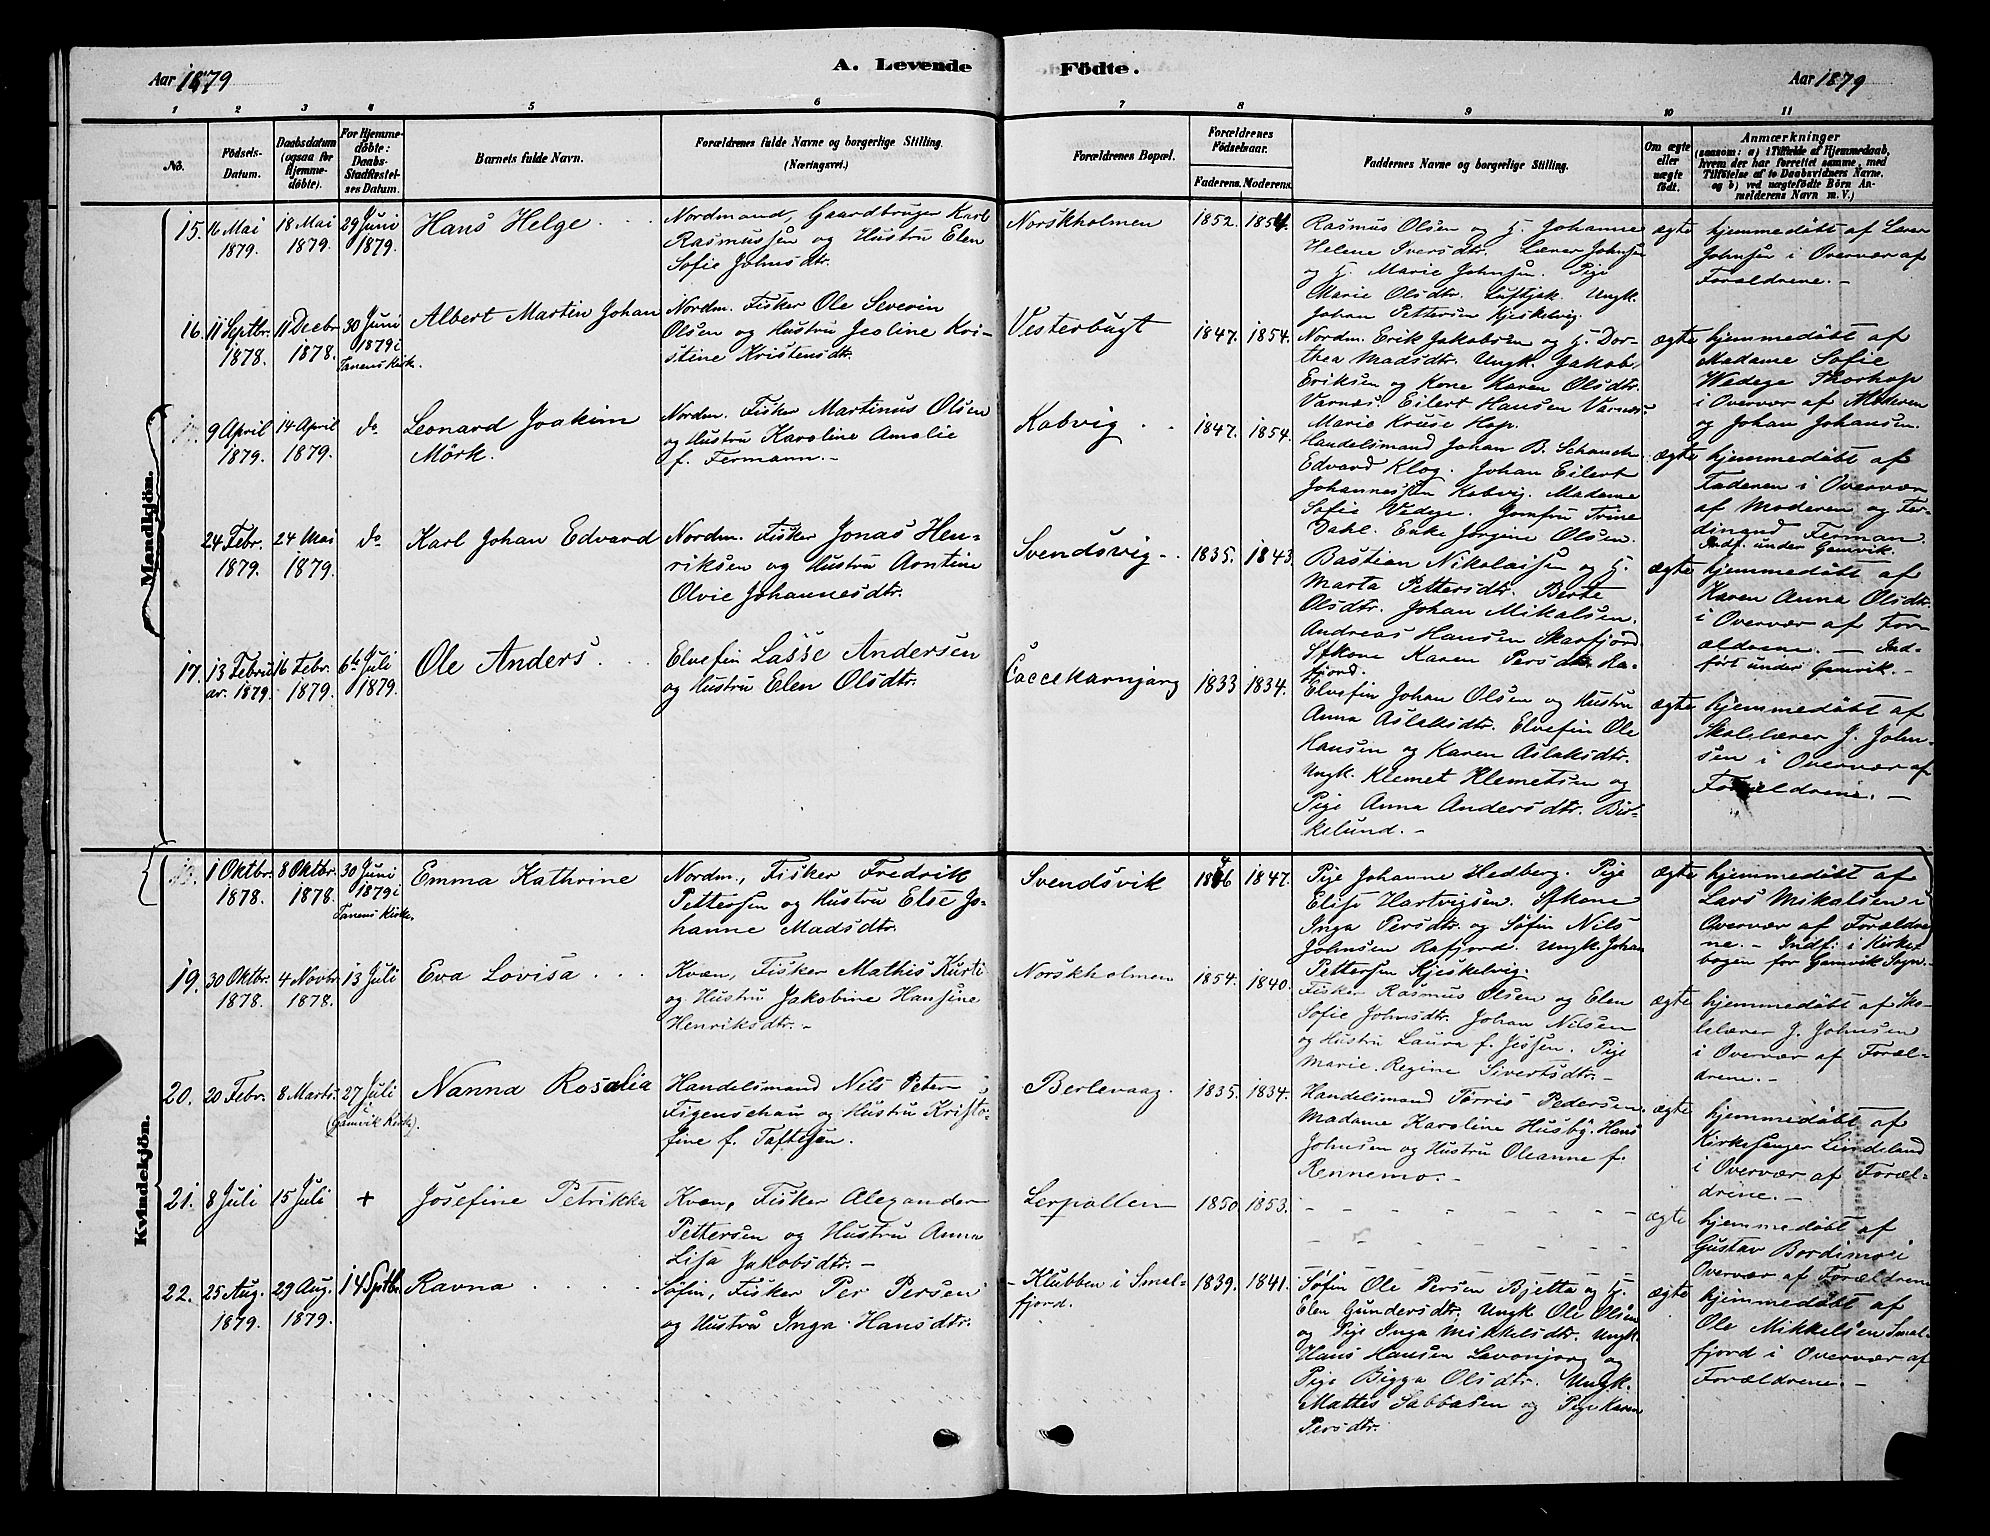 Aar 1879
A. Levende Födte.
Aar 1879
1 2 3 4 5 6 7 8 9 10 11
No.
Födsels-
Datum.
Daabsdatum
(ogsaa for
Hjemme-
döbte).
For Hjemme-
döbte:
Daabs-
Stadfæstel-
ses Datum.
Barnets fulde Navn.
Forældrenes fulde Navne og borgerlige Stilling.
(Næringsvei.)
Forældrenes Bopæl.
Forældrenes
Födselsaar.
Faderens. Moderens.
Faddernes Navne og borgerlige Stilling.
Om ægte
eller
uægte
födt.
Anmærkninger
(saasom: a) i Tilfælde af Hjemmedaab,
hvem der har forrettet samme, med
Tilföielse af to Daabsvidners Navne,
og b) ved uægtefödte Börn An-
melderens Navn m. V.)
Mandkjön.
15.
16 Mai
1879.
18 Mai
1879.
29 Juni
1879.
Hans Helge
Nordmand, Gaardbruger Karl
Rasmussen og Hustru Elen
Sofie Johnsdtr.
Norskholmen
1852. 1854.
Rasmus Olsen og H. Johanne
Helene Iversdtr. Lærer Johnsen
og H. Marie Johnsen. Pige
Marie Olsdtr. Luftjok. Ungk.
Johan Pettersen Kjeskelvig.
ægte
hjemmedöbt af Lærer
Johnsen i Overvær af
Forældrene. —
16.
11 Septbr.
1878.
11 Decbr.
1878.
30 Juni
1879 i
Tanens Kirk.
Albert Martin Johan
Nordm. Fisker Ole Severin
Olsen og Hustru Jeoline Kri-
stine Kristensdtr.
Vesterbugt
1847. 1854.
Nordm. Erik Jakobsen og H. Dor-
thea Madsdtr. Ungk. Jakob
Eriksen og Kone Karen Olsdtr.
Varnæs. Eilert Hansen Varnæs.
Marie Kruse Hop.
ægte
hjemmedöbt af
Madame Sofie
Wedege Thorhop
i Overvær af Moderen
og Johan Johansen.
9 April
1879.
14 April
1879.
do
Leonard Joakim
Mörk.
Nordm. Fisker Martinus Olsen
og Hustru Karoline Amalie
f. Fermann. —
Kobvig
1847. 1854.
Handelsmand Johan B. Schanch.
Edvard Klog. Johan Eilert
Johannessen Kobvig. Madame
Sofie Wedege. Jomfru Trine
Dahl. Enke Jørgine Olsen.
ægte
hjemmedöbt af
Faderen i Overvær
af Moderen og Fer-
dinand Ferman.
Indf. under Gamvik.
24 Febr.
1879.
24 Mai
1879.
do
Karl Johan Edvard
Nordm. Fisker Jonas Hen-
riksen og Hustru Arntine
Olvie Johannesdtr.
Svendsvig
1835. 1843.
Bastian Nikolaisen og H.
Marta Pettersdtr. Berte
Olsdtr. Johan Mikalsen.
Andreas Hansen Skarfjord.
Sfkone Karen Persdtr. Ra-
fjord.
ægte
hjemmedöbt af
Karen Anna Olsdtr.
i Overvær af For-
ældrene. — Ind-
fört under Gamvik. —
17.
13 Febru-
ar. 1879.
16 Febr.
1879.
6te Juli
1879.
Ole Anders
Elvefin Lasse Andersen
og Hustru Elen Olsdtr.
Caccekarnjarg
1833 1834.
Elvefin Johan Olsen og Hustru
Anna Aslaksdtr. Elvefin Ole
Hansen og Karen Aslaksdtr.
Ungk. Klemet Klemetsen og
Pige Anna Andersdtr. Bir-
kelund. —
ægte
hjemmedöbt af
Skolelærer J. John-
sen i Overvær af
Forældrene. —
Kvindekjön.
1 Oktbr.
1878.
8 Oktbr.
1878.
30 Juni
1879 i
Tanens Kirke.
Emma Kathrine
Nordm., Fisker Fredrik
Pettersen og Hustru Else Jo-
hanne Madsdtr.
Svendsvik
1846 1847.
Pige Johanne Hedberg. Pige
Elise Hartvigsen. Sfkone
Inga Persdtr. og Söfin Nils
Johnsen Rafjord. Ungk. Johan
Pettersen Kjeskelvig.
ægte
hjemmedöbt af
Lars Mikalsen i
Overvær af Forældre-
ne. — Indf: i Kirke-
bogen for Gamvik Sogn.
19.
30 Oktbr.
1878.
4 Novbr.
1878.
13 Juli
Eva Lovisa
Kvæn, Fisker Mathis Kurti
og Hustru Jakobine Hansine
Henriksdtr. —
Norskholmen
1854. 1840.
Fisker Rasmus Olsen og Elen
Sofie Johnsdtr. Johan Nilsen
og Hustru Laura f. Jessen. Pige
Marie Regine Sivertsdtr. —
ægte
hjemmedöbt af Sko-
lelærer J. Johnsen
i Overvær af Foræl-
drene. —
20.
20 Febr.
8 Marts.
27 Juli
i
(Gamvik Kirke).
Nanna Rosalia
Handelsmand Nils Peter
Figenschau og Hustru Kristo-
fine f. Taftesen.
Berlevaag
1835. 1834.
Handelsmand Tørris Pedersen.
Madame Karoline Husby. Hans
Johnsen og Hustru Oleanne f.
Rennemo. —
ægte
hjemmedöbt af
Kirkesanger Lindeland
i Overvær af Foræl-
drene. —
21.
8 Juli
15 Juli
+
Josefine Petrikka
Kvæn, Fisker Alexander
Pettersen og Hustru Anna
Lisa Jakobsdtr. —
Lerpollen
1850 1853.
ægte
hjemmedöbt af
Gustav Bordimoi i
Overvær af Forældrene
22.
25 Aug.
1879.
29 Aug.
1879.
14 Septbr.
Ravna
Söfin, Fisker Per Persen
og Hustru Inga Hansdtr.
Klubben i Smal-
fjord.
1839. 1841.
Söfin Ole Persen Bjetta og H.
Elen Gundersdtr. Ungk Ole Olsen
og Pige Inga Mikkelsdtr. Ungk.
Hans Hansen Levonjorg og
Pige Bigga Olsdtr. Ungk.
Mattis Sabbasen og Pige Karen
Persdtr.
ægte
hjemmedöbt af
Ole Mikkelsen Smal-
fjord i Overvær af
Forældrene. —